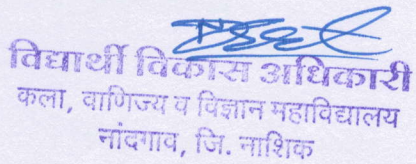 विद्यार्थी विकास अधिकारी
कला, वाणिज्य व विज्ञान महाविद्यालय
नांदगाव, जि. नाशिक